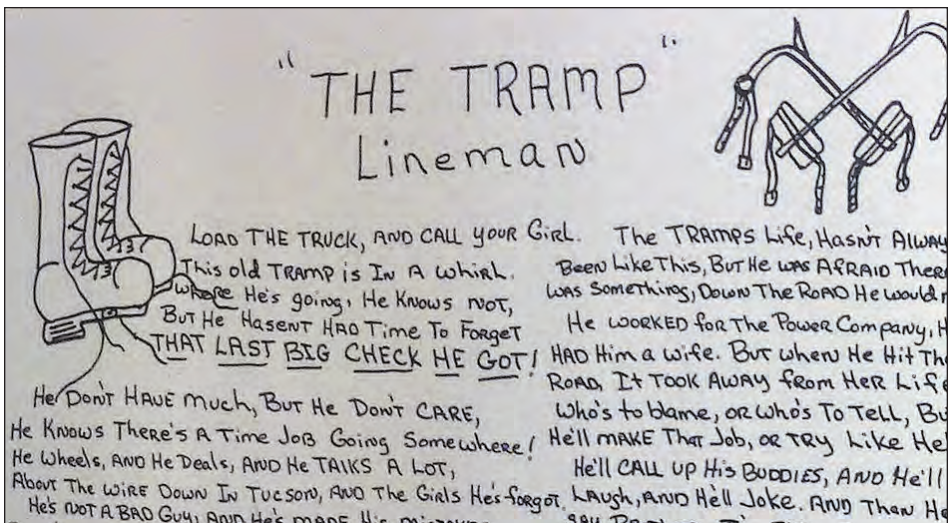 "THE TRAMP"
Lineman
LOAD THE TRUCK, AND CALL YOUR GIRL.
This old TRAMP is IN A WHIRL.
Where He's going, He Knows NOT,
But He HASENT HAD Time To Forget
THAT LAST BIG CHECK HE GOT!
He DON'T HAVE much, But He DON'T CARE,
He Knows There's A Time Job Going Somewhere!
He Wheels, AND He Deals, AND He TALKS A LOT,
About The WIRE DOWN IN TUCSON, AND The Girls He's forgot.
He's NOT A BAD Guy, AND He's MADE His
The TRAMPS Life, HASN'T
Been Like This, But He WAS AFRAID
WAS Something, DOWN The ROAD He would
He WORKED for The Power Company,
HAD Him a wife. But when He Hit
ROAD, It TOOK AWAY from Her
Who's to blame, or Who's To Tell,
He'll MAKE That Job, OR TRY Like
He'll CALL UP His BUDDIES, AND He'll
LAUGH, AND He'll Joke. AND Than